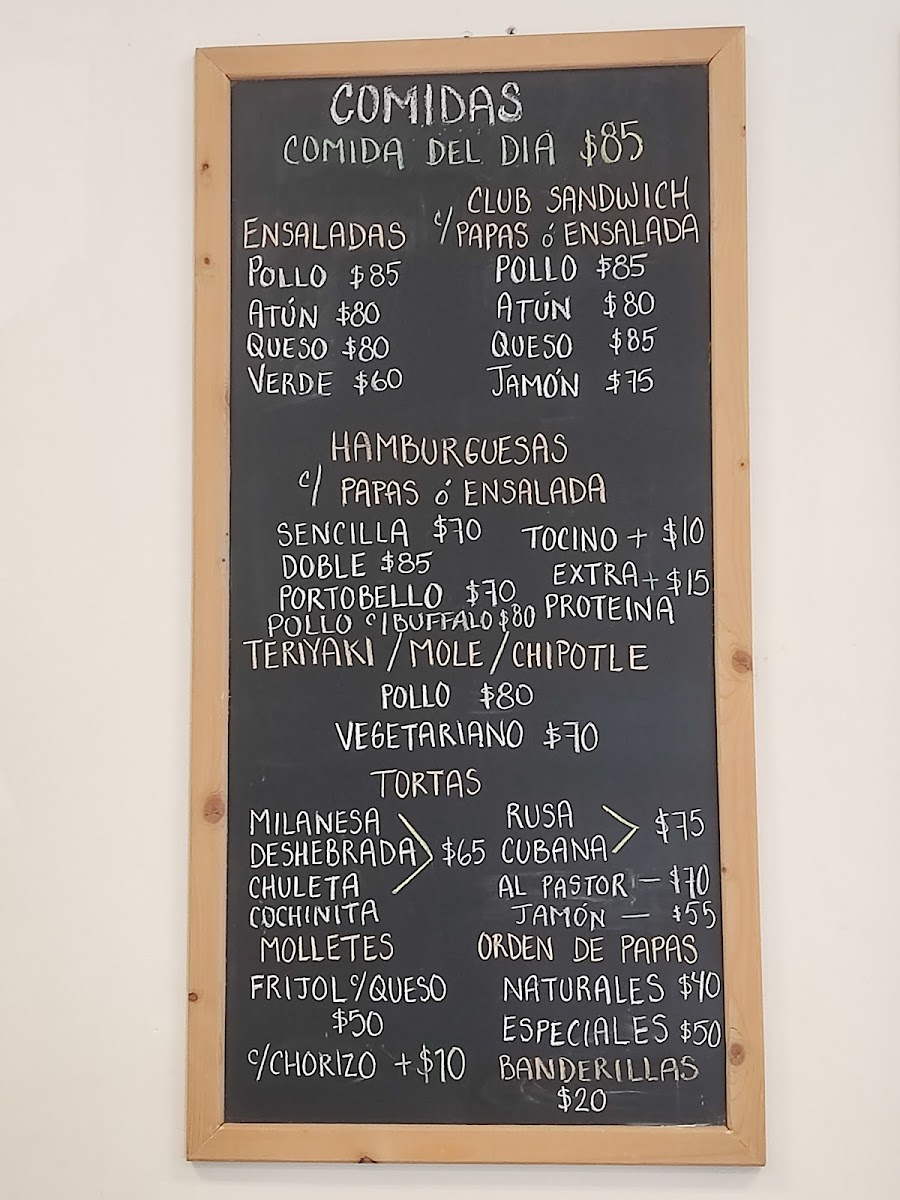 COMIDAS
COMIDA DEL DIA $85
ENSALADAS
POLLO $85
ATÚN $80
QUESO $80
VERDE $60
CLUB SANDWICH
c/PAPAS ó ENSALADA
POLLO $85
ATÚN $80
QUESO $85
JAMÓN $75
HAMBURGUESAS
c/ PAPAS ó ENSALADA
SENCILLA $70
DOBLE $85
PORTOBELLO $70
POLLO c/BUFFALO $80
TOCINO + $10
EXTRA + $15
PROTEINA
TERIYAKI / MOLE / CHIPOTLE
POLLO $80
VEGETARIANO $70
TORTAS
MILANESA
DESHEBRADA $65
CHULETA
COCHINITA
RUSA
CUBANA $75
AL PASTOR — $70
JAMÓN — $55
MOLLETES
FRIJOL c/QUESO
$50
c/CHORIZO + $10
ORDEN DE PAPAS
NATURALES $40
ESPECIALES $50
BANDERILLAS
$20